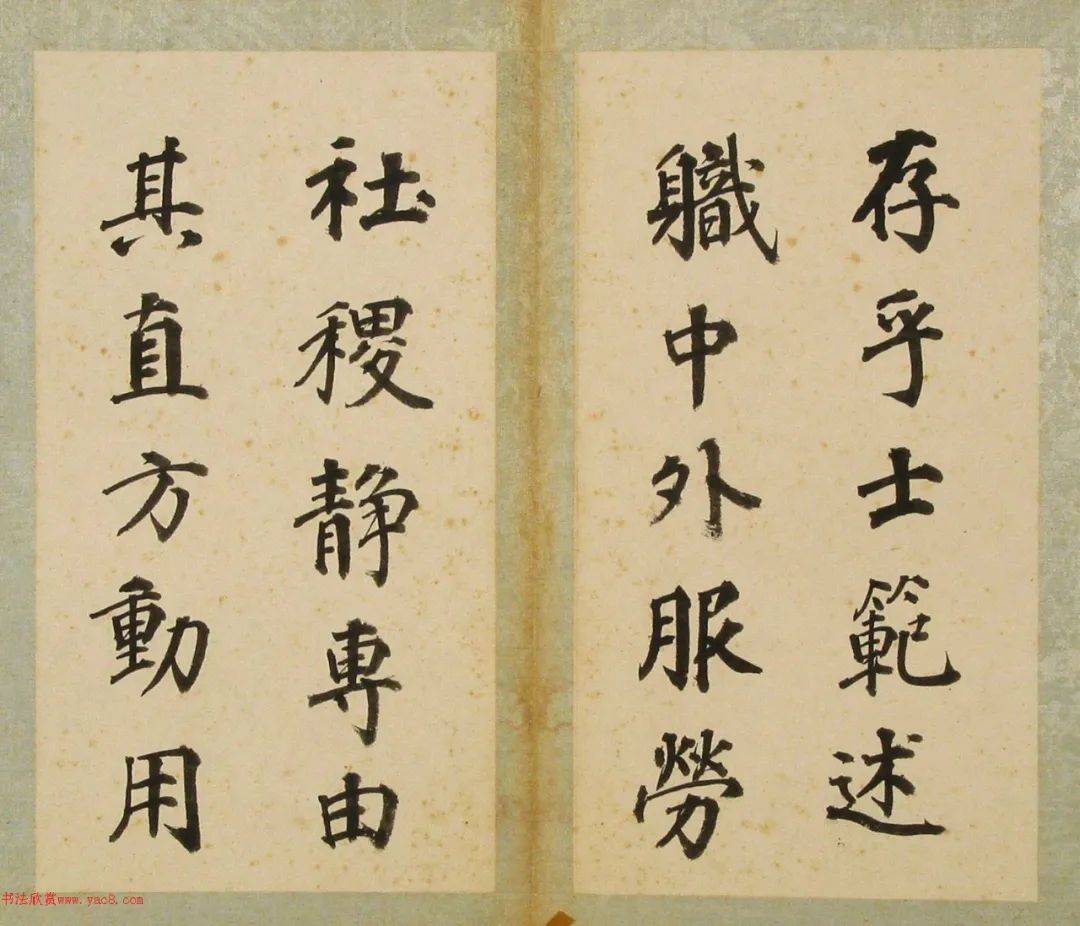 存乎士範述
職中外服勞
社稷静專由
其直方動用
书法欣赏www.yac8.com